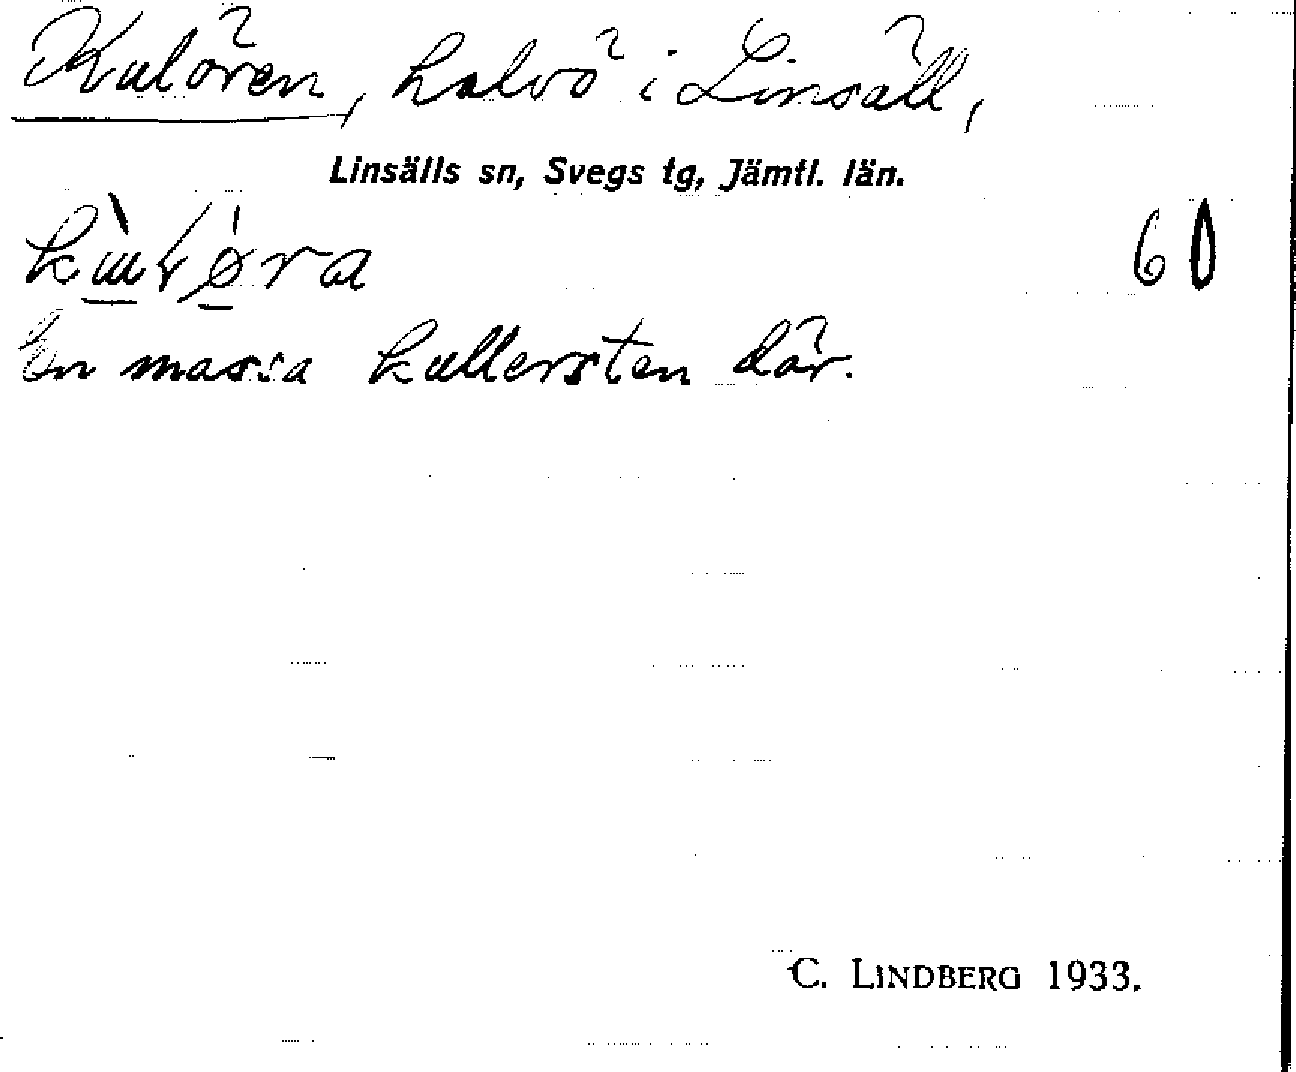 Kulören, halvö i Linsäll,
Linsälls sn, Svegs tg, Jämtl. län.
60
En massa kullersten där.
C. LINDBERG 1933.